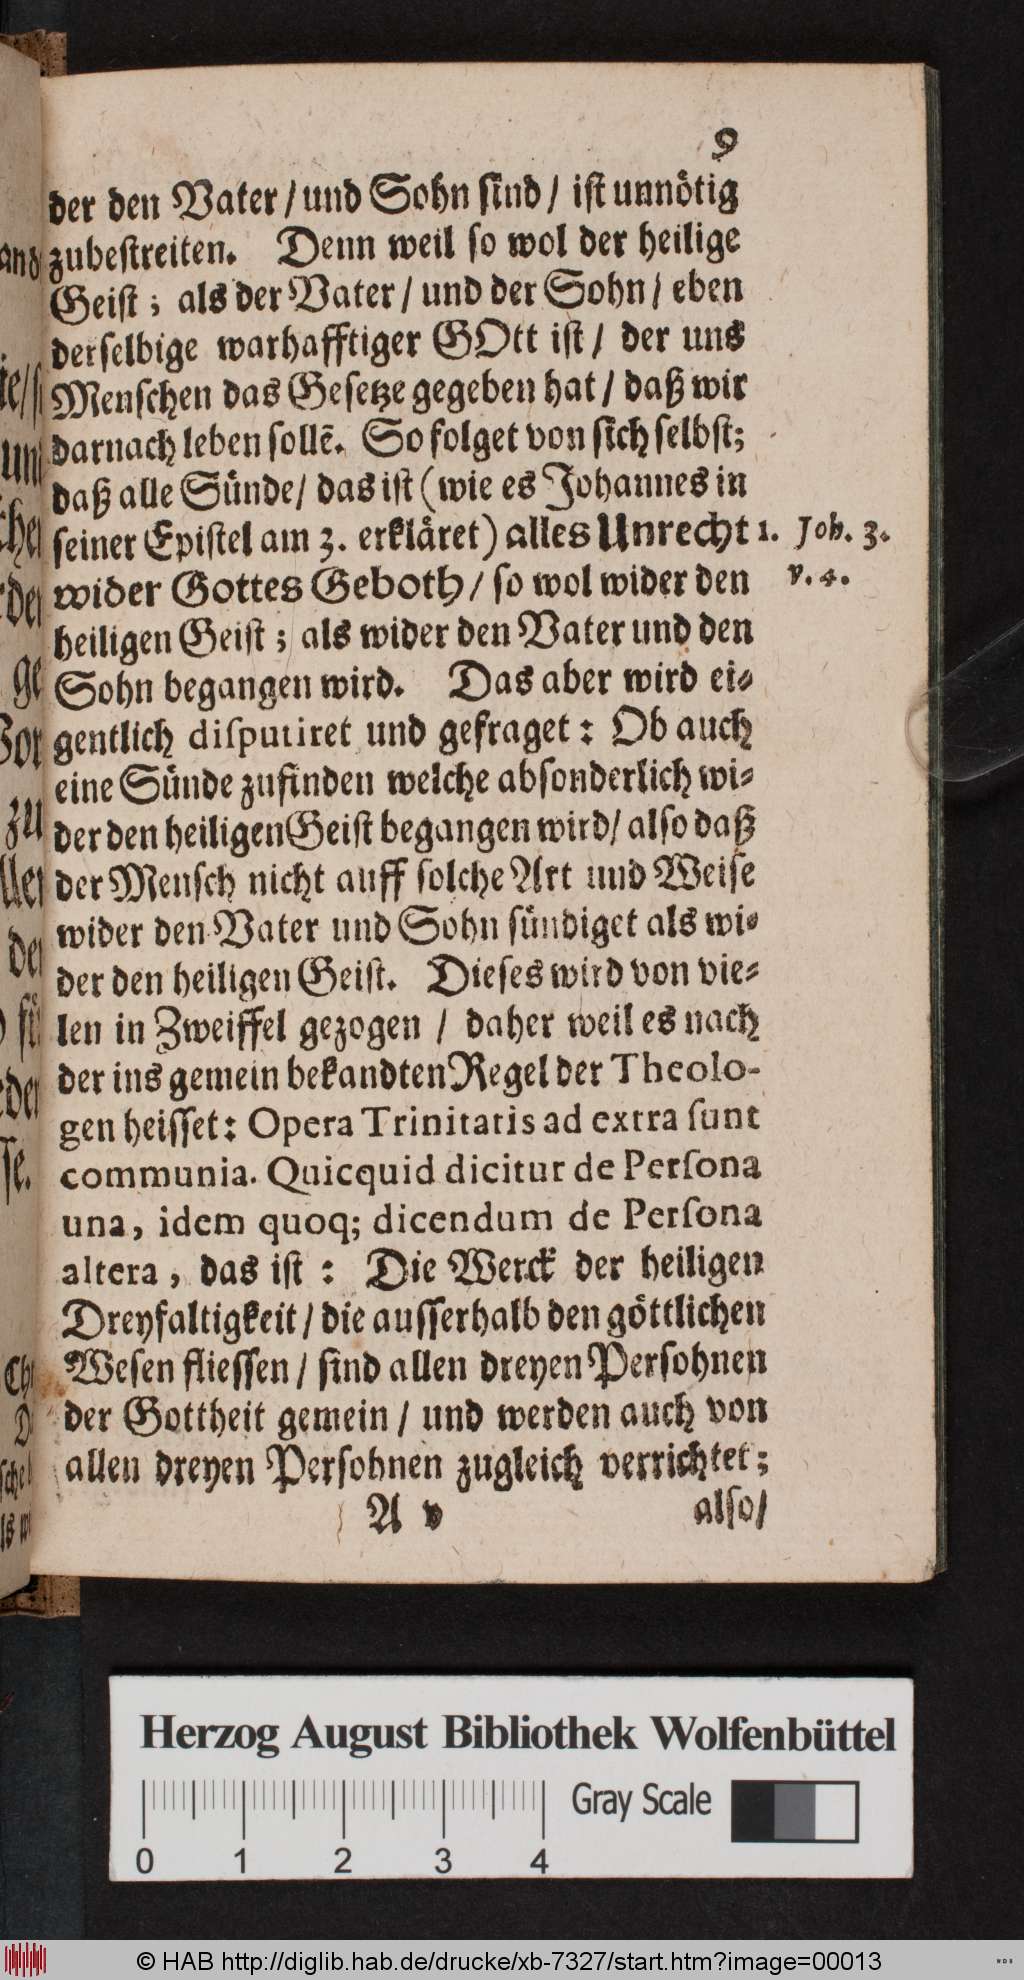 9
der den Vater / und Sohn sind / ist unnötig
zubestreiten. Denn weil so wol der heilige
Geist ; als der Vater / und der Sohn / eben
derselbige warhafftiger GOtt ist / der uns
Menschen das Gesetze gegeben hat / daß wir
darnach leben sollē. So folget von sich selbst;
daß alle Sünde / das ist (wie es Johannes in
seiner Epistel am 3. erkläret) alles Unrecht
1. Joh. 3.
wider Gottes Geboth / so wol wider den
v. 4.
heiligen Geist ; als wider den Vater und den
Sohn begangen wird. Das aber wird ei-
gentlich disputiret und gefraget : Ob auch
eine Sünde zufinden welche absonderlich wi-
der den heiligen Geist begangen wird / also daß
der Mensch nicht auff solche Art und Weise
wider den Vater und Sohn sündiget als wi-
der den heiligen Geist. Dieses wird von vie-
len in Zweiffel gezogen / daher weil es nach
der ins gemein bekandten Regel der Theolo-
gen heisset : Opera Trinitatis ad extra sunt
communia. Quicquid dicitur de Persona
una, idem quoq; dicendum de Persona
altera, das ist : Die Werck der heiligen
Dreyfaltigkeit / die ausserhalb den göttlichen
Wesen fliessen / sind allen dreyen Persohnen
der Gottheit gemein / und werden auch von
allen dreyen Persohnen zugleich verrichtet ;
A v also /
Herzog August Bibliothek Wolfenbüttel
Gray Scale
0 1 2 3 4
© HAB http://diglib.hab.de/drucke/xb-7327/start.htm?image=00013